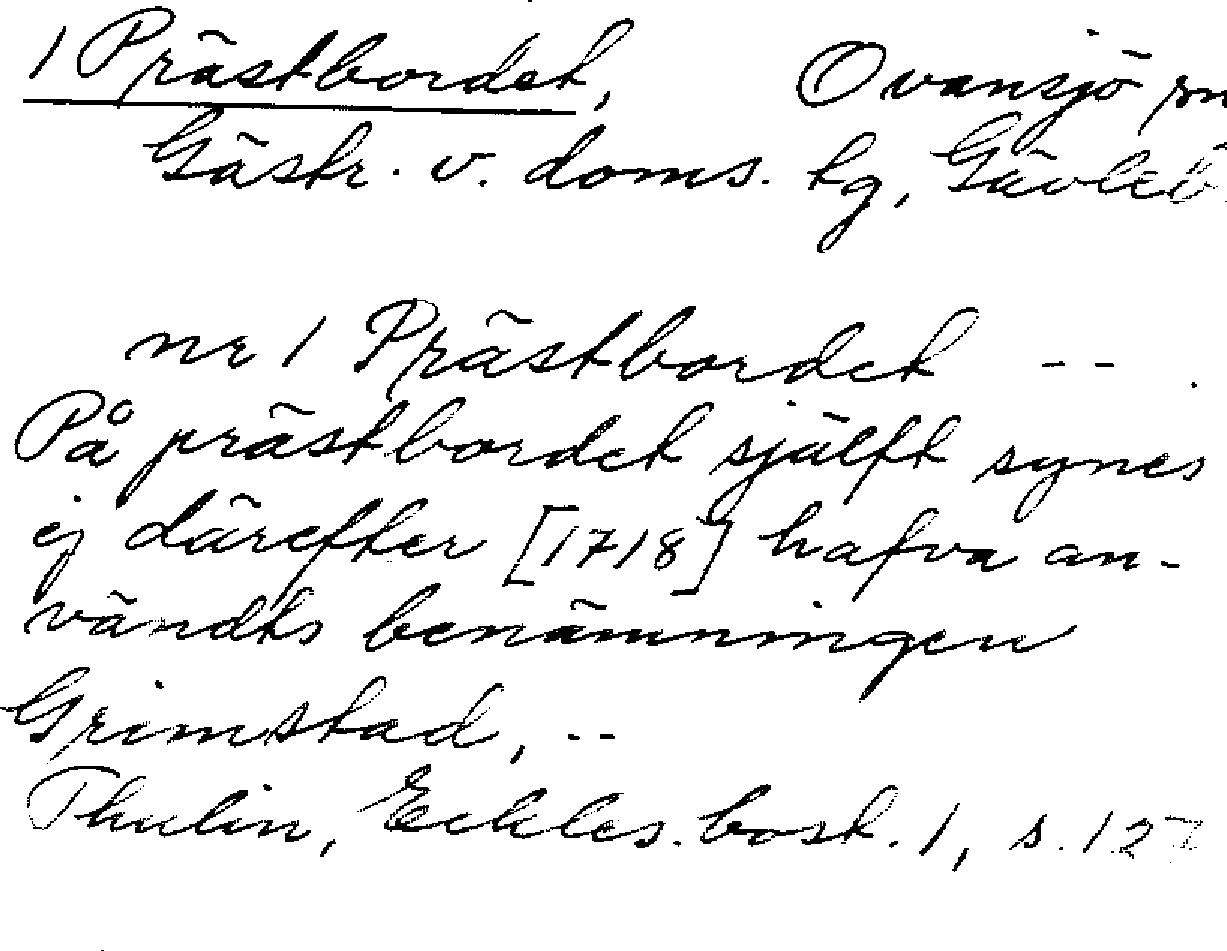 1 Prästbordet, Ovansjö sn
Gästr. v. doms. tg, Gävleb.
nr 1 Prästbordet --
På prästbordet självft synes
ej därefter [1718] hafva an-
vändts benämningen
Grimstad, --
Thulin, Eckles. bost. 1, s. 127